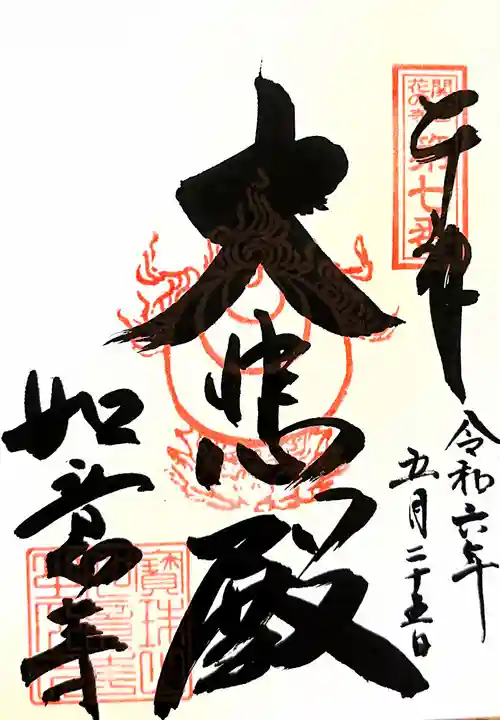 奉拝
関西花の寺第七番
令和六年
五月二十五日
大悲殿
如意寺
寶珠山